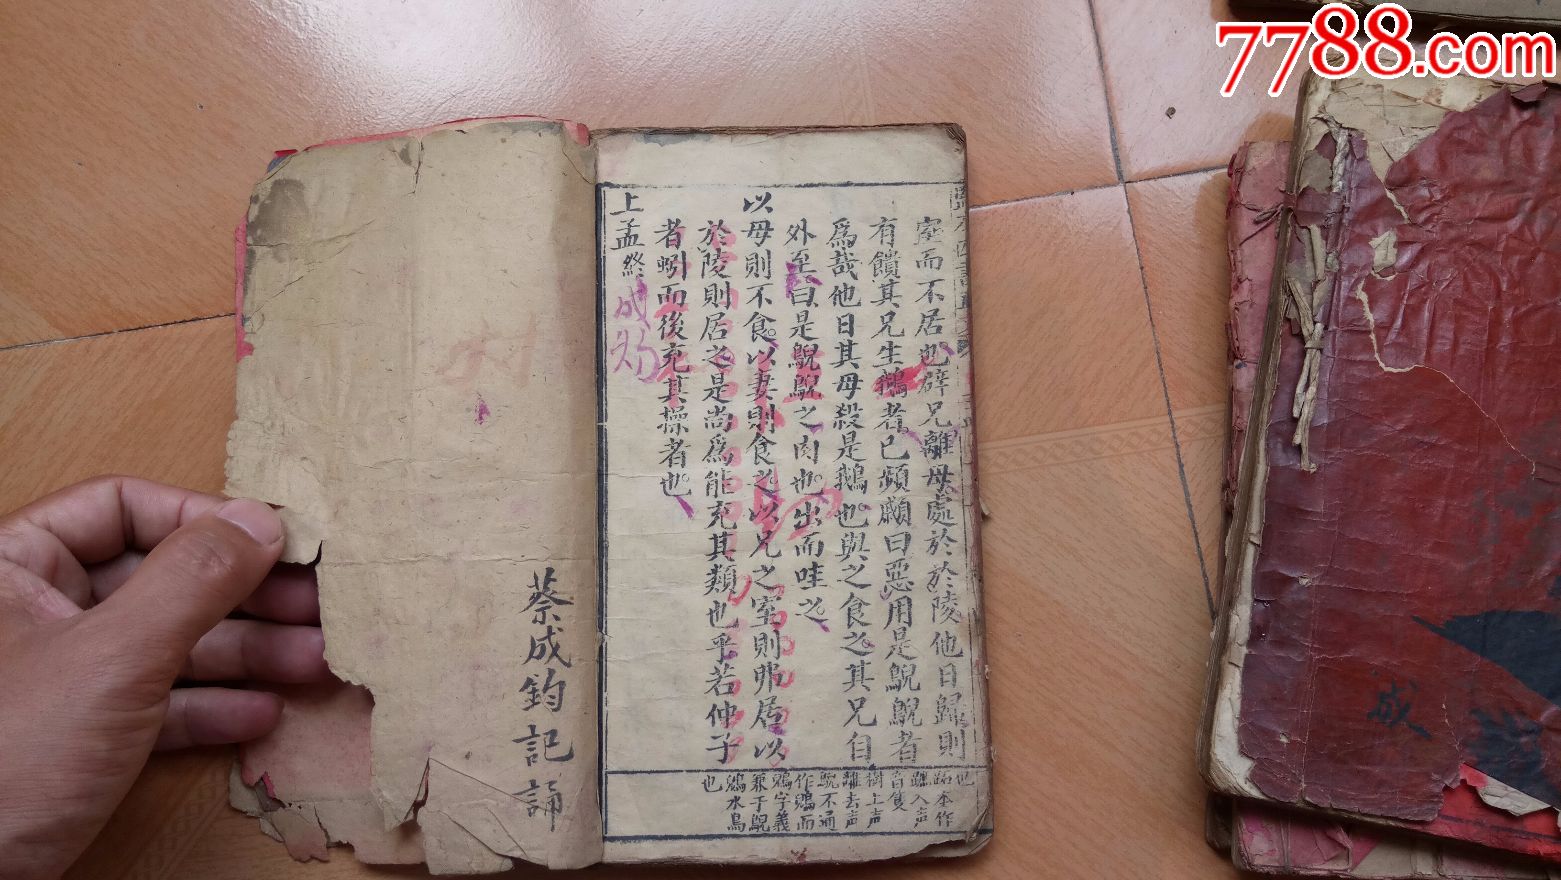 7788.com
室而不居也辟兄離母處於於陵他日歸則
有饋其兄生鵝者已頻顣曰惡用是鶃鶃者
爲哉他日其母殺是鵝也與之食之其兄自
外至曰是鶃鶃之肉也出而哇之
以母則不食以妻則食之以兄之室則弗居以
於陵則居之是尚爲能充其類也乎若仲子
者蚓而後充其操者也
上孟終
也
跖本作
蹠入声
音隻
樹上声
離去声
鶃不通
作鶂而
鶂字義
兼于鶃
鶂水鳥
也
蔡成鈞記誦
成